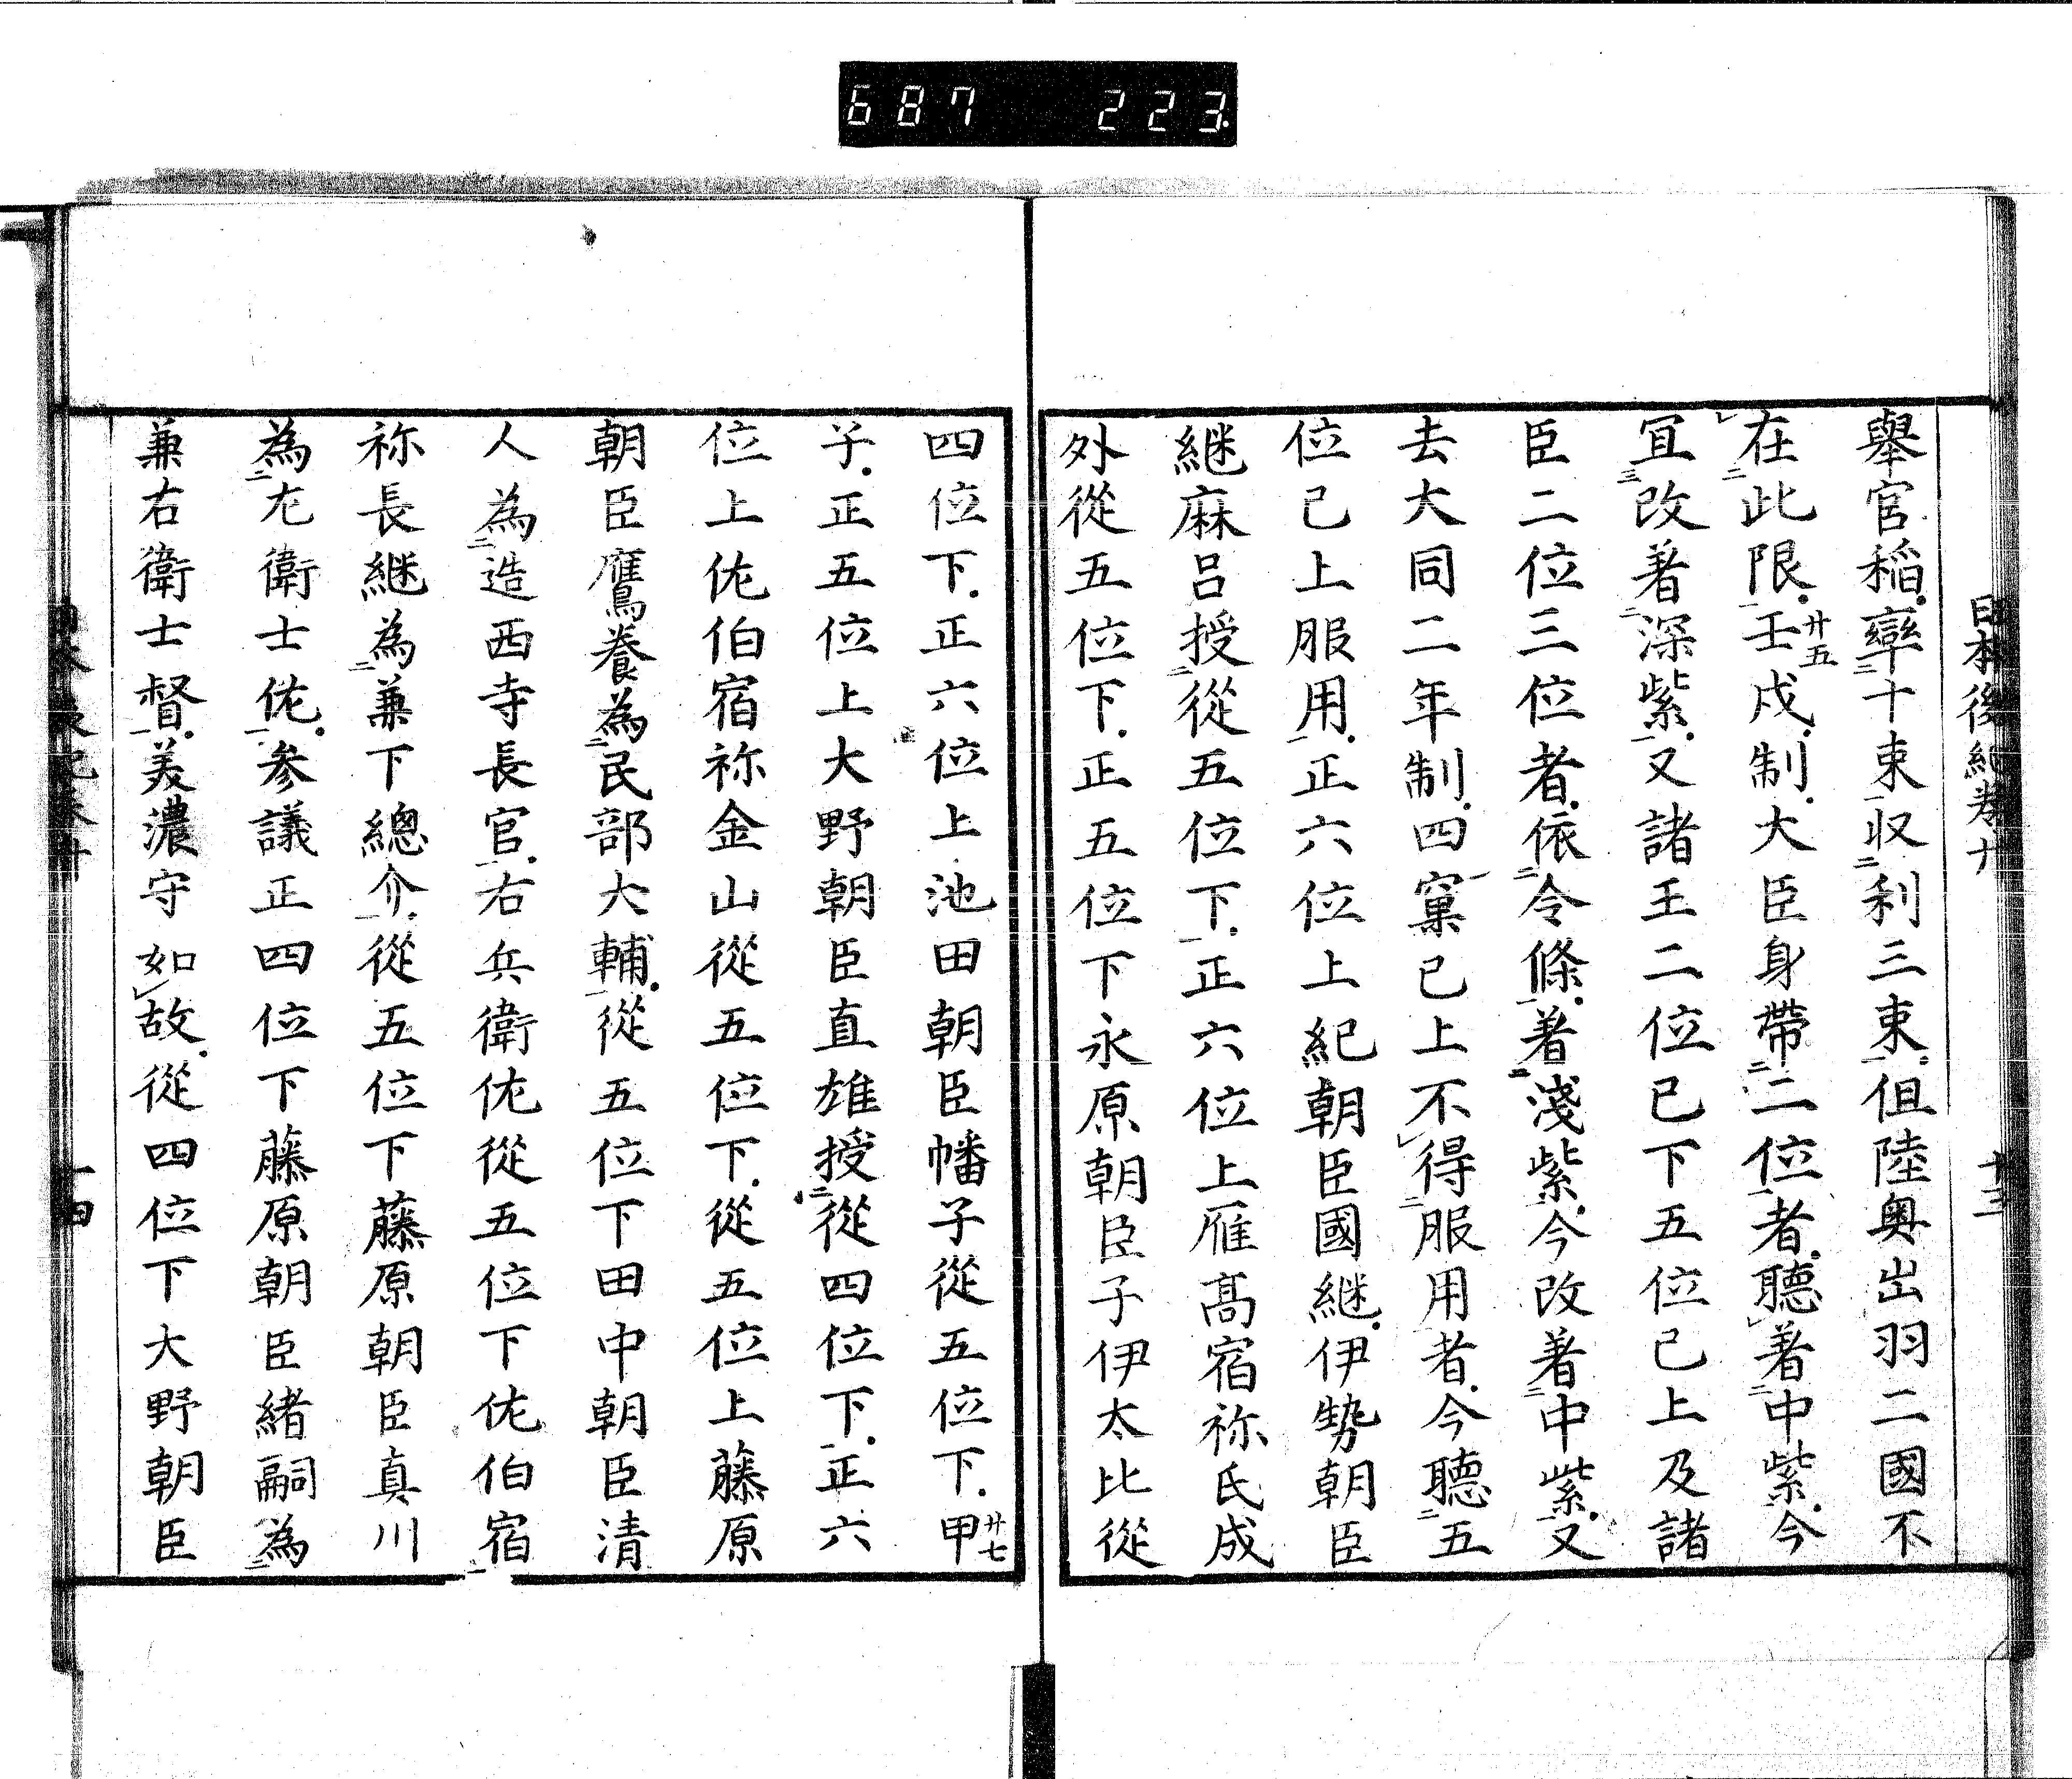 687 223
日本後紀卷十 十三
舉官稻率十束収利三束但陸奥出羽二國不
在此限壬戌廿五制大臣身帶二位者聽著中紫今
宜改著深紫又諸王二位已下五位已上及諸
臣二位三位者依令條著淺紫今改著中紫又
去大同二年制四窠已上不得服用者今聽五
位已上服用正六位上紀朝臣國継伊勢朝臣
継麻呂授從五位下正六位上雁髙宿祢氏成
外從五位下正五位下永原朝臣子伊太比從
四位下正六位上池田朝臣幡子從五位下甲廿七
子正五位上大野朝臣直雄授從四位下正六
位上佐伯宿祢金山從五位下從五位上藤原
朝臣鷹養為民部大輔從五位下田中朝臣清
人為造西寺長官右兵衛佐從五位下佐伯宿
祢長継為兼下總介從五位下藤原朝臣真川
為左衛士佐参議正四位下藤原朝臣緒嗣為
兼右衛士督美濃守如故從四位下大野朝臣
十四